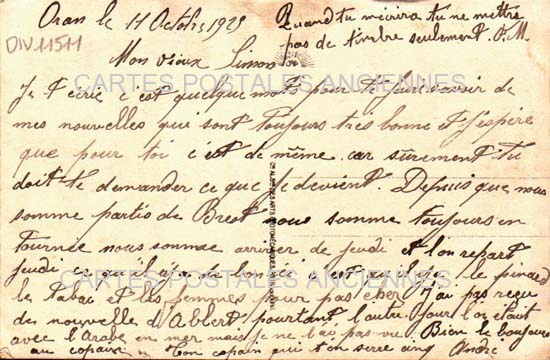 Oran le 17 Octobre 1929
Quand tu m'écrira tu ne mettra
pas de timbre seulement F.M.
DIV.11511
Mon vieux Simon
CARTES POSTALES ANCIENNES
Je t'écrie c'est quelque mots pour te faire savoir de
mes nouvelles qui sont toujours très bonne et j'espère
que pour toi c'est de même. car sûrement tu
doit te demander ce que je devient. Depuis que nous
somme partis de Brest nous somme toujours en
tournée nous somme arriver de jeudi et l'on repart
jeudi ce qu'il y a de bon ici c'est qu'il y a le pinard
CARTES POSTALES ANCIENNES
le tabac et les femmes pour pas cher J'ai pas reçu
des nouvelle d'Albert pourtant l'autre jour l'on était
avec l'Arabe en mer mais je ne l'ai pas vu Bien le bonjour
au copain Ton copain qui t'en serre cinq André